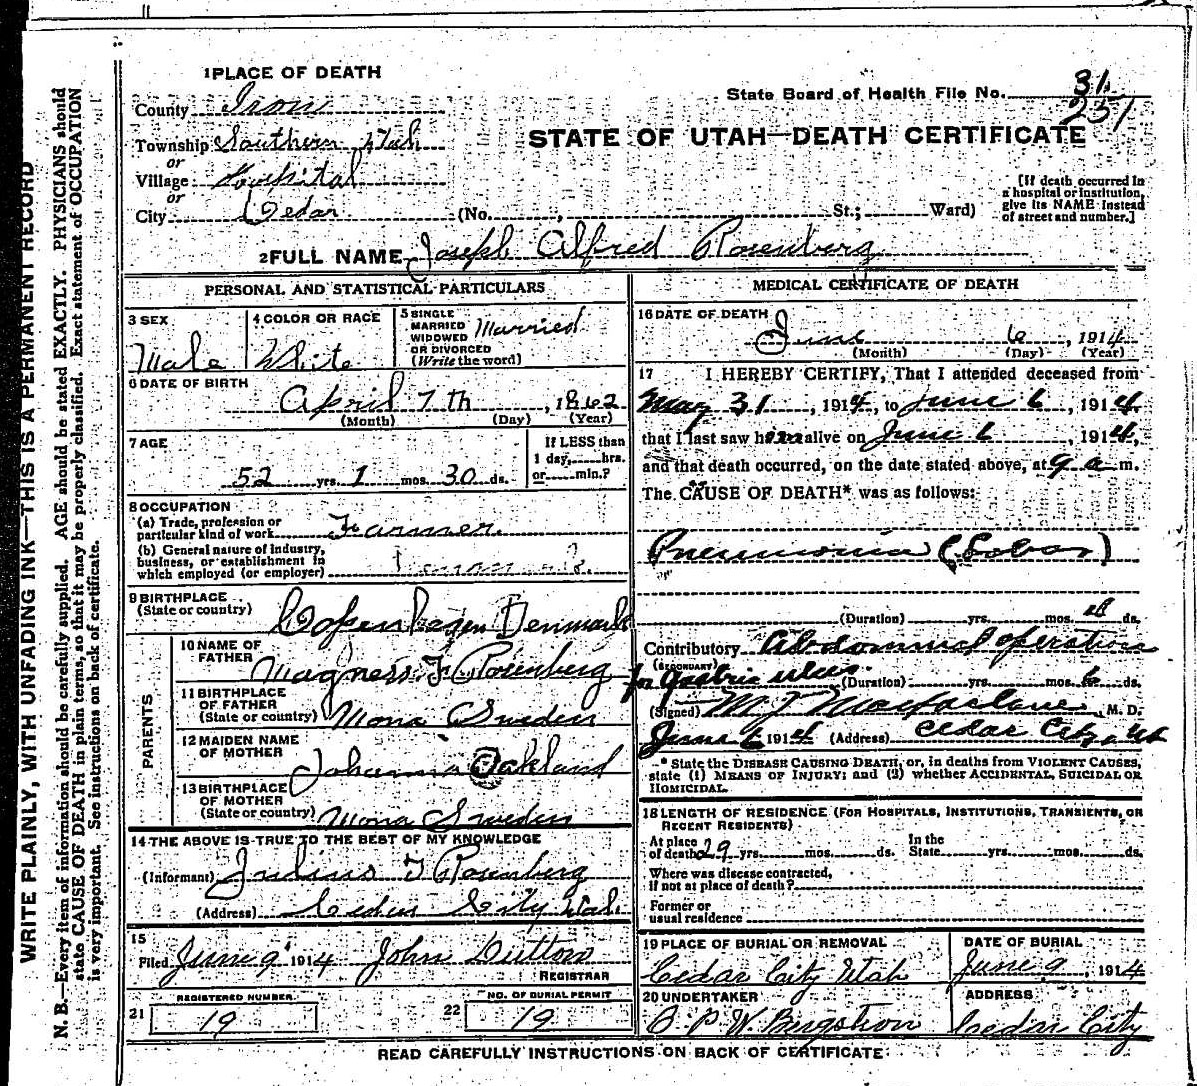 1 PLACE OF DEATH
County Iron
State Board of Health File No. 31
251
Township Southern Utah
STATE OF UTAH—DEATH CERTIFICATE
or
Village Hospital
or
City Cedar (No. , St.; Ward)
[If death occurred in
a hospital or institution,
give its NAME instead
of street and number.]
2 FULL NAME Joseph Alfred Rosenberg
PERSONAL AND STATISTICAL PARTICULARS
3 SEX
Male
4 COLOR OR RACE
White
5 SINGLE
MARRIED Married
WIDOWED
OR DIVORCED
(Write the word)
6 DATE OF BIRTH
April 7th , 1862
(Month) (Day) (Year)
7 AGE
52 yrs. 1 mos. 30 ds.
If LESS than
1 day, hrs.
or min.?
8 OCCUPATION
(a) Trade, profession or
particular kind of work Farmer.
(b) General nature of industry,
business, or establishment in
which employed (or employer)
9 BIRTHPLACE
(State or country) Copenhagen Denmark
PARENTS
10 NAME OF
FATHER Magness F Rosenberg
11 BIRTHPLACE
OF FATHER
(State or country) Mona Sweden
12 MAIDEN NAME
OF MOTHER Johanna Oakland
13 BIRTHPLACE
OF MOTHER
(State or country) Mona Sweden
14 THE ABOVE IS TRUE TO THE BEST OF MY KNOWLEDGE
(Informant) Julius F Rosenberg
(Address) Cedar City Utah.
15
Filed June 9 1914 John Dutton
REGISTRAR
REGISTERED NUMBER
21 19
NO. OF BURIAL PERMIT
22 19
MEDICAL CERTIFICATE OF DEATH
16 DATE OF DEATH
June 6 , 1914
(Month) (Day) (Year)
17 I HEREBY CERTIFY, That I attended deceased from
May 31 , 1914, to June 6 , 1914
that I last saw him alive on June 6 , 1914,
and that death occurred, on the date stated above, at 9 a m.
The CAUSE OF DEATH* was as follows:
Pneumonia (Lobar)
(Duration) yrs. mos. ds.
Contributory Abdominal operation
(SECONDARY)
for gastric ulcer. (Duration) yrs. mos. 6 ds.
(Signed) M J Macfarlane M. D.
June 6 1914 (Address) Cedar City Utah
* State the DISEASE CAUSING DEATH, or, in deaths from VIOLENT CAUSES,
state (1) MEANS OF INJURY; and (2) whether ACCIDENTAL, SUICIDAL OR
HOMICIDAL.
18 LENGTH OF RESIDENCE (FOR HOSPITALS, INSTITUTIONS, TRANSIENTS, OR
RECENT RESIDENTS)
At place
of death 29 yrs. mos. ds.
In the
State yrs. mos. ds.
Where was disease contracted,
if not at place of death?
Former or
usual residence
19 PLACE OF BURIAL OR REMOVAL
Cedar City Utah
DATE OF BURIAL
June 9 , 1914
20 UNDERTAKER
P W Bergstrom
ADDRESS
Cedar City
READ CAREFULLY INSTRUCTIONS ON BACK OF CERTIFICATE
WRITE PLAINLY, WITH UNFADING INK—THIS IS A PERMANENT RECORD
N. B.—Every item of information should be carefully supplied. AGE should be stated EXACTLY. PHYSICIANS should
state CAUSE OF DEATH in plain terms, so that it may be properly classified. Exact statement of OCCUPATION
is very important. See instructions on back of certificate.